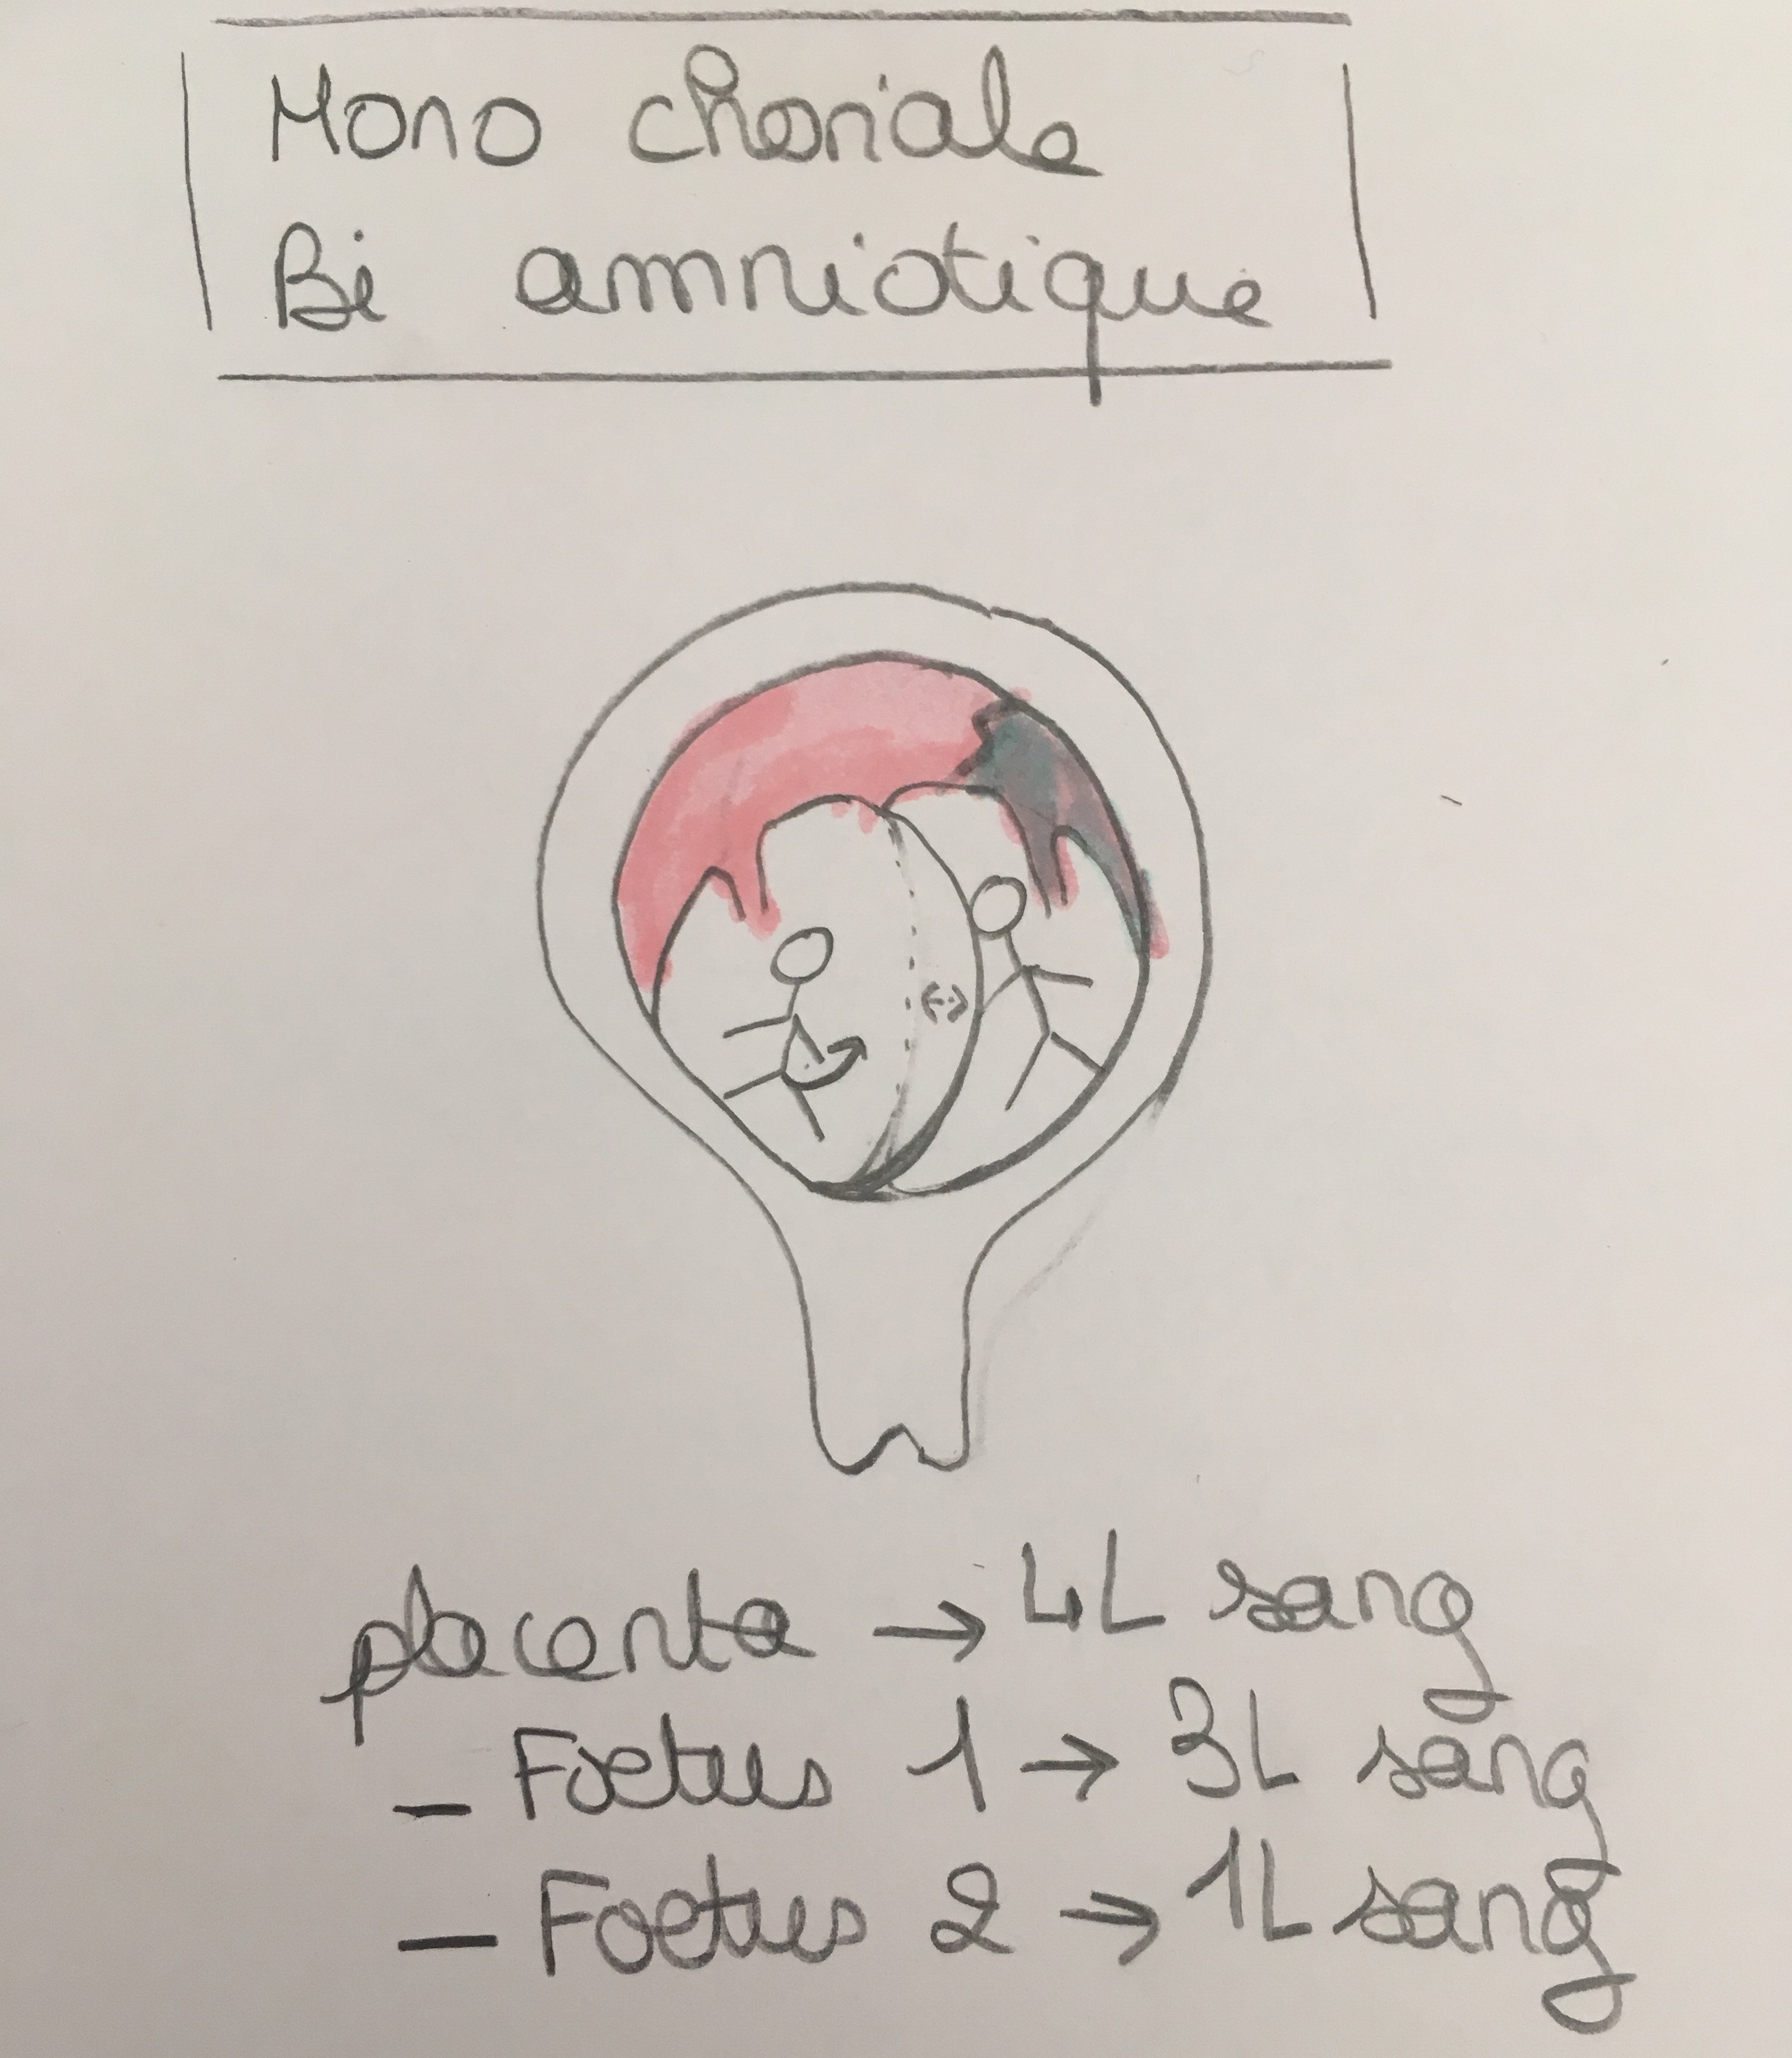 Mono choriale
Bi amniotique
placenta → 4L sang
- Foetus 1 → 3L sang
- Foetus 2 → 1L sang